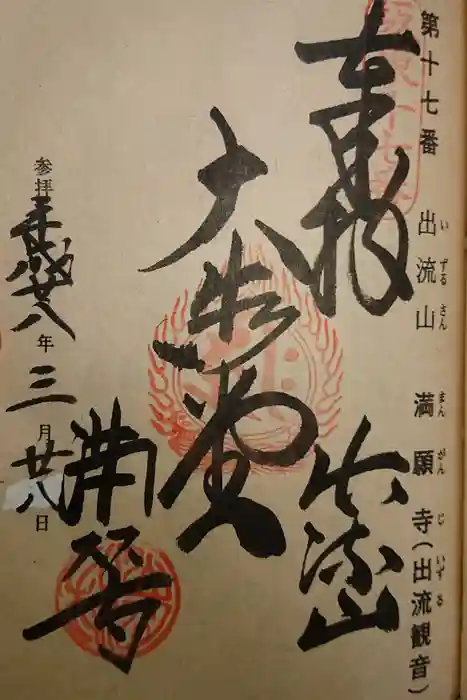 第十七番 出流山 満願寺(出流観音)
いずるさん まんがんじ いずる
坂東十七番
奉拝 出流山
大悲殿
満願寺
参拝 平成廿八年三月廿八日